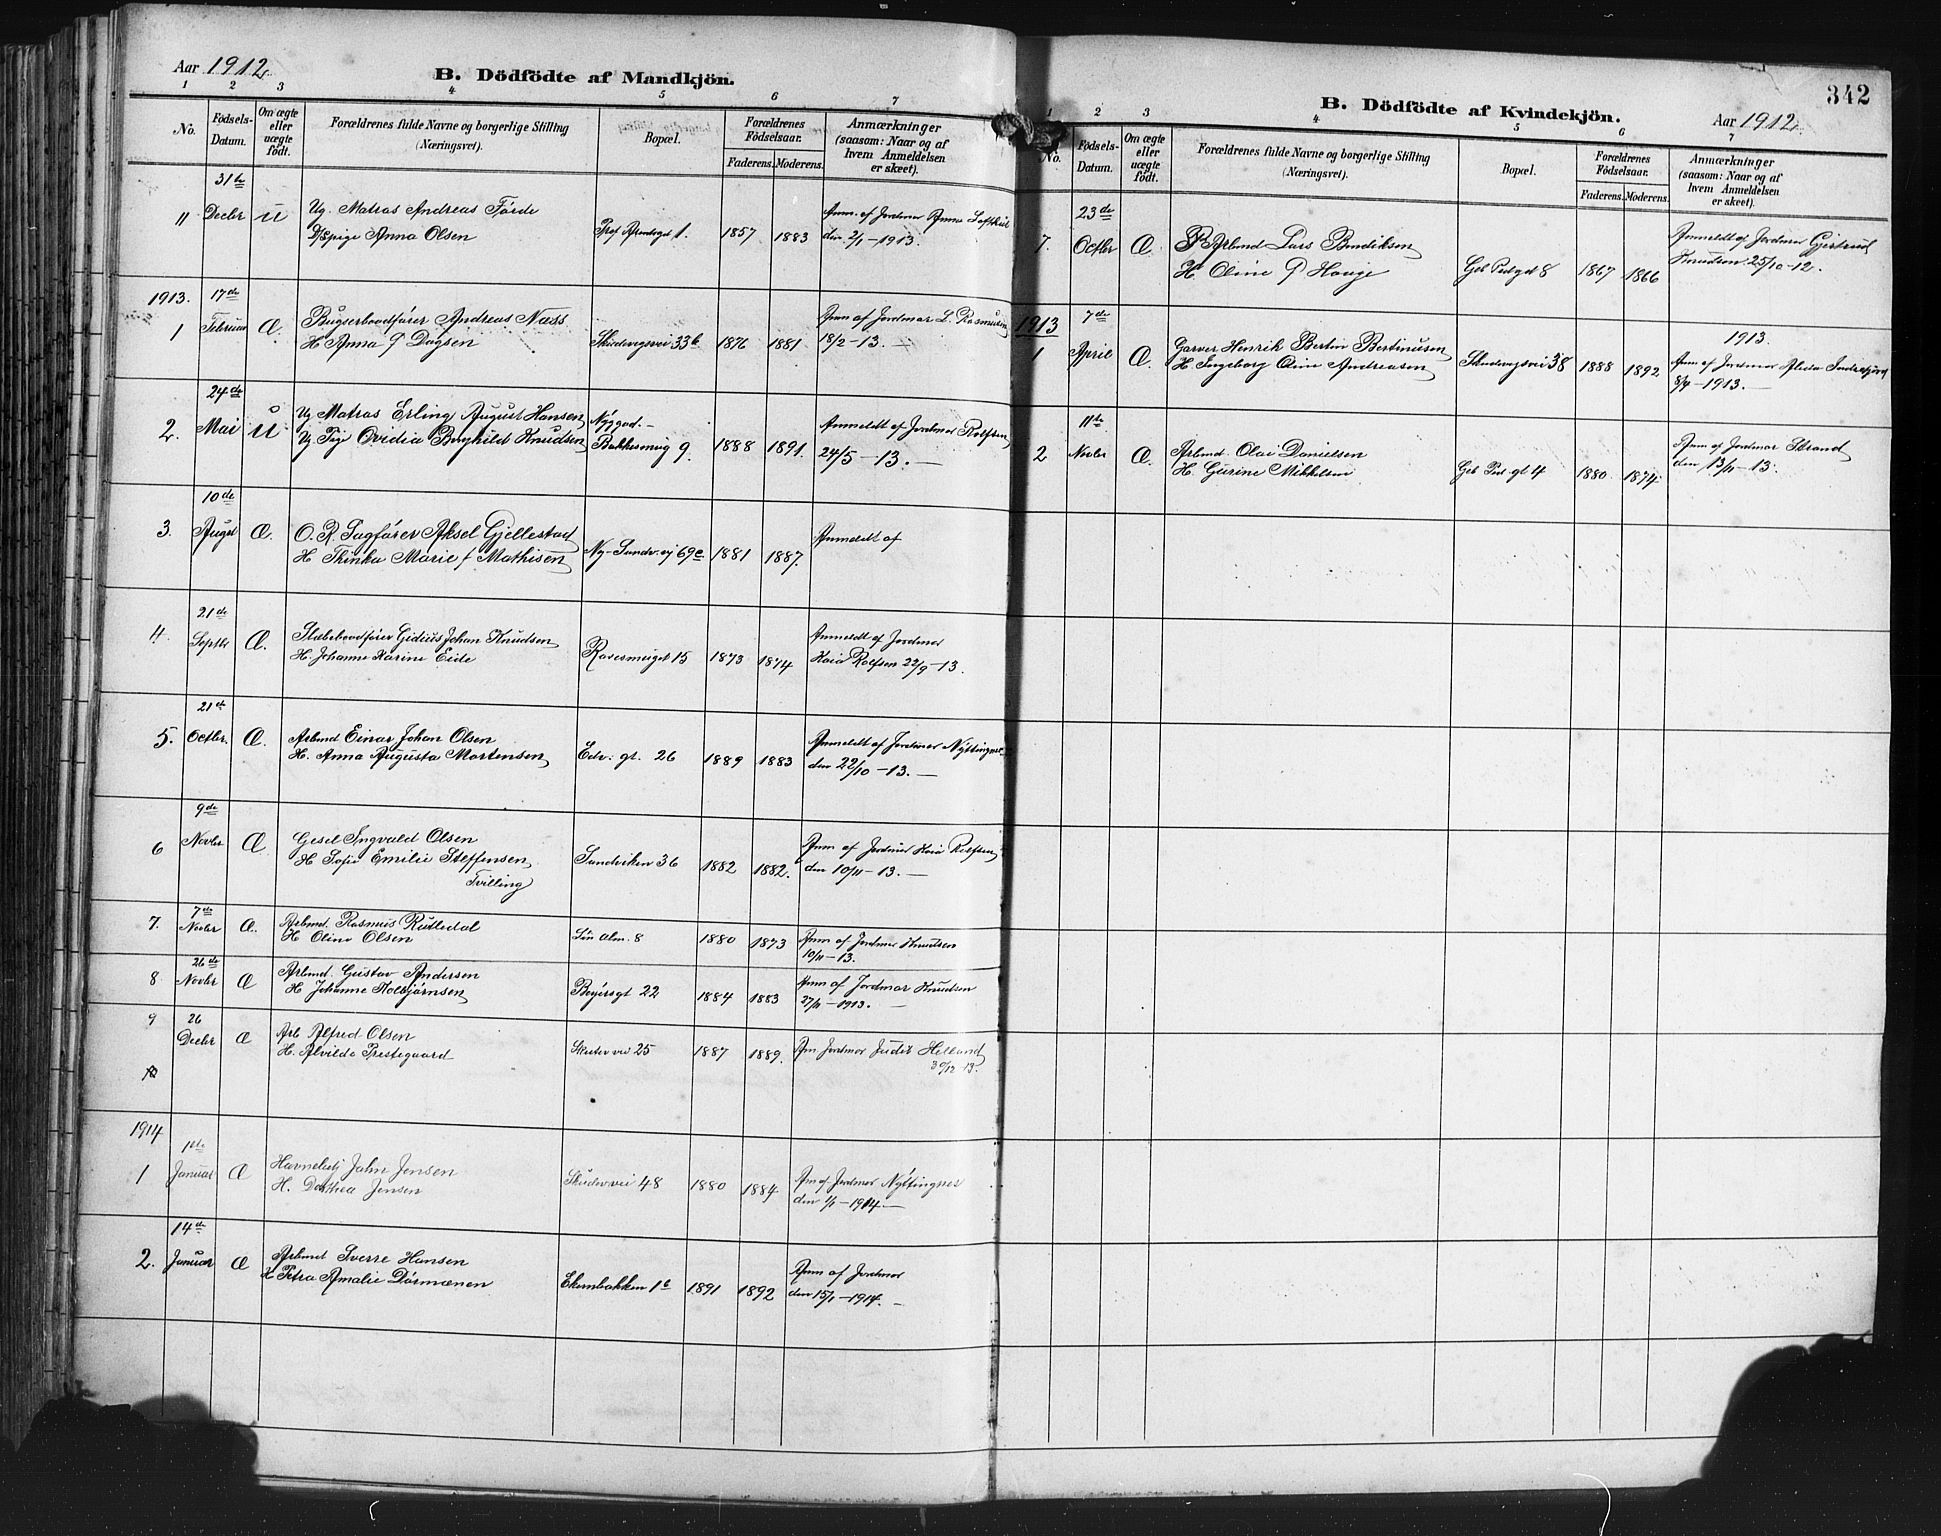 Aar 1912.
B. Dödfödte af Mandkjön.
1 2 3 4 5 6 7
No.
Födsels-Datum.
Om ægte eller uægte født.
Forældrenes fulde Navne og borgerlige Stilling (Næringsvei).
Bopæl.
Forældrenes Födselsaar.
Faderens. Moderens.
Anmærkninger (saasom: Naar og af hvem Anmeldelsen er skeet).
31te
11 Decbr U Ug. Matros Andreas Förde
Pige Anna Olsen 1. 1857 1883
Anm. af Jordmor Anna
den 2/1-1913.
1913. 17de
1 Februar Æ. Bugserbaadförer Andreas Næss
H Anna f Dagsen 33b 1876 1881
Anm af Jordmor L. Rasmussen
18/2-13.
24de
2. Mai U Ug Matros Erling August Hansen
Ug Pige Ovidia Borghild Knudsen
Nyggad.-
Bakkesmug 9. 1888 1891.
Anmeldt af Jordmor Rolfsen
24/5-13.
10de
3. August Æ. O. R. Sagförer Aksel Gjellestad
H Thinka Marie f Mathisen
Ny-Sandv.vej 69c 1881 1887.
Anmeldt af
21de
4. Septbr Æ. Slæbebaadförer Gidius Johan Knudsen
H. Johanne Karine Eide
15 1873 1874
Anmeldt af Jordmor
Kaia Rolfsen 22/9-13.
21de
5. Octbr. Æ. Arbmd Einar Johan Olsen
H. Anna Augusta Mortensen
Edv. gt. 26 1889 1883
Anmeldt af Jordmor Nyttingnes
den 22/10-13.
9de
6 Novbr Æ Gesel Ingvald Olsen
H Sofie Emilie Steffensen
Tvilling
Sandviken 36 1882 1882.
Anm af Jordmor Kaia Rolfsen
den 10/11-13.
7de
7. Novbr Æ. Arbmd. Rasmus Rutledal
H Oline Olsen
alm. 8 1880 1873
Anm af Jordmor Knudsen
10/11-13.
26de
8 Novbr Æ Arbmd. Gustav Andersen
H Johanne Kolbjörnsen
Beyersgt 22 1884 1883
Anm af Jordmor Knudsen
27/11-1913.
9 26
Decbr Æ Arb Alfred Olsen
H. Alvilde Prestegaard
Skutev vei 25 1887 1889.
Am Jordmor Judit Helland
30/12-13.
10
1914
1ste
1 Januar Æ John Jensen
H. Dorthea Jensen
48 1880 1884
Am af Jordmor Nyttingnes
den 1/1-1914.
14de
2. Januar Æ Arbmd Sverre Hansen
H Petra Amalie Dörmænen
Ekernbakken 1b 1891 1892
Anm af Jordmor
den 15/1-1914.
342
B. Dödfödte af Kvindekjön.
Aar 1912.
1 2 3 4 5 6 7
No.
Födsels-Datum.
Om ægte eller uægte födt.
Forældrenes fulde Navne og borgerlige Stilling (Næringsvei).
Bopæl.
Forældrenes Födselsaar.
Faderens. Moderens.
Anmærkninger (saasom: Naar og af hvem Anmeldelsen er skeet).
23de
7. Octbr Æ Arbmd Lars Bendiksen
H. Oline f Hauge
8 1867 1866
Anmeldt af Jordmor Gjertrud
Knudsen 25/10-12.
1913 7de
1 April Æ Garver Henrik Bertin Bertinusen
H. Ingeborg Oline Andreasen
38 1888 1892
1913.
Anm af Jordmor Alida
8/4-1913.
11te
2 Novbr Æ. Arbmd. Olai Danielsen
H. Gurine Mikkelsen
4 1880 1874
Anm af Jordmor Strand
den 13/11-13.